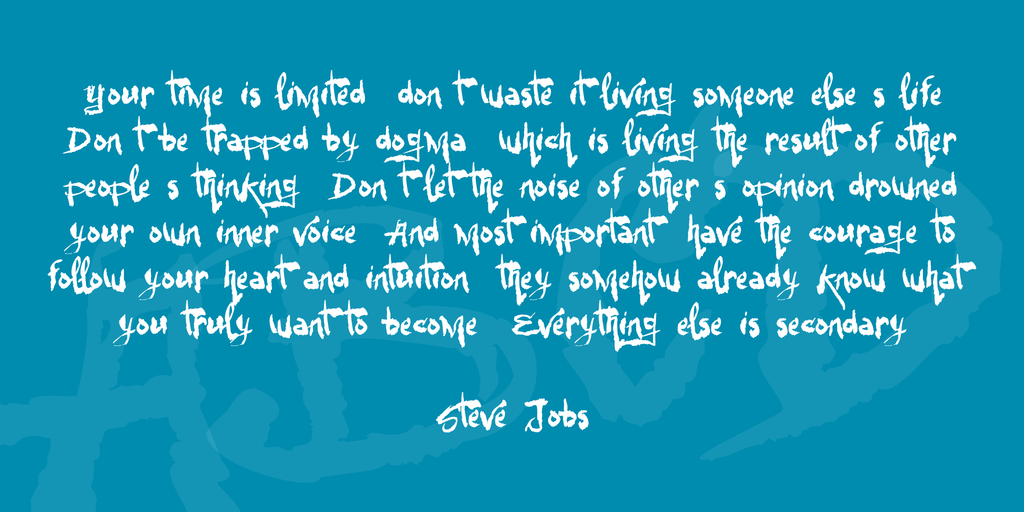 Your time is limited don t waste it living someone else s life
Don t be trapped by dogma which is living the result of other
people s thinking Don t let the noise of other s opinion drowned
your own inner voice And most important have the courage to
follow your heart and intuition they somehow already know what
you truly want to become Everything else is secondary
Steve Jobs
ABCD